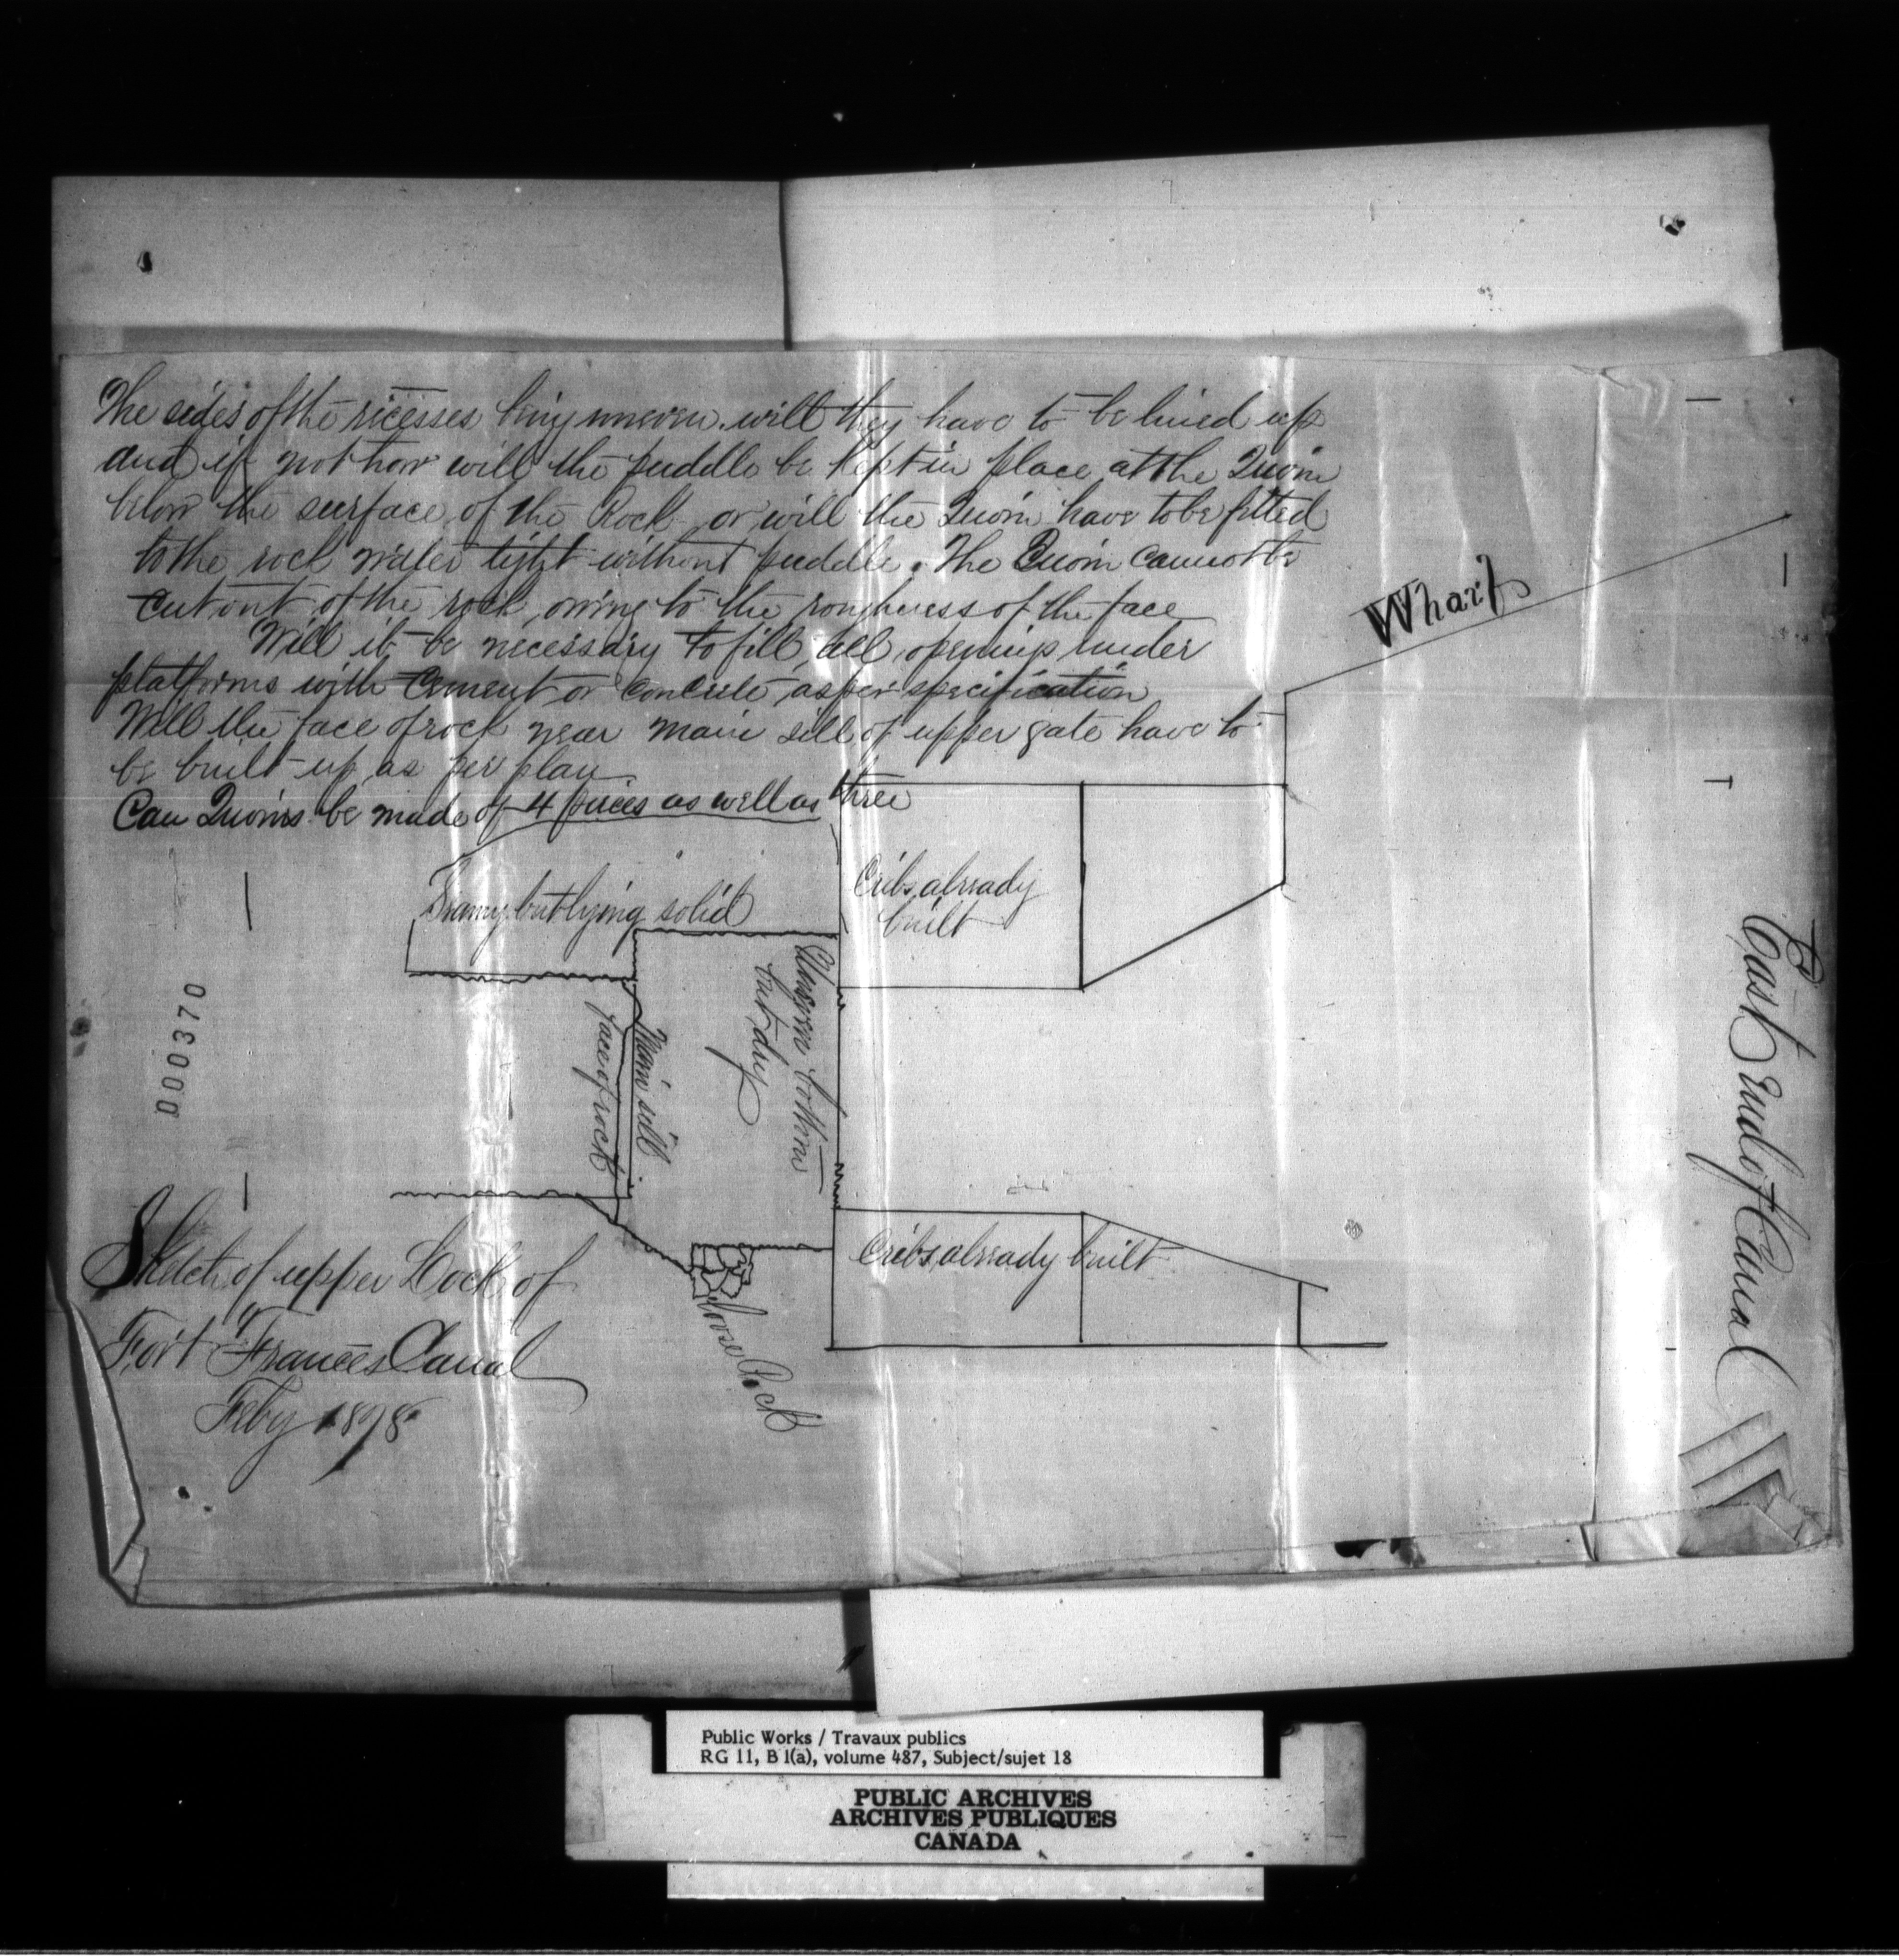 The sides of the ricesses being uneven. will they have to be lined up
and if not how will the puddle be kept in place at the Quoin
below the surface of the Rock or will the Quoin have to be fitted
to the rock water tight without puddle. The Quoin cannot be
cut out of the rock, owing to the roughness of the face
Will it be necessary to fill all openings under
platforms with cement or concrete as per specification
Will the face of rock near main sill of upper gate have to
be built up as per plan
Can Quoins be made of 4 pieces as well as three
Wharf
but lying solid
Cribs already
built
Uneven bottom
but dry
Main sill
face of rock
000370
Cribs already built
Loose Rock
East end of Canal
Sketch of upper Lock of
Fort Frances Canal
Feby 1878
Public Works / Travaux publics
RG 11, B 1(a), volume 487, Subject/sujet 18
PUBLIC ARCHIVES
ARCHIVES PUBLIQUES
CANADA